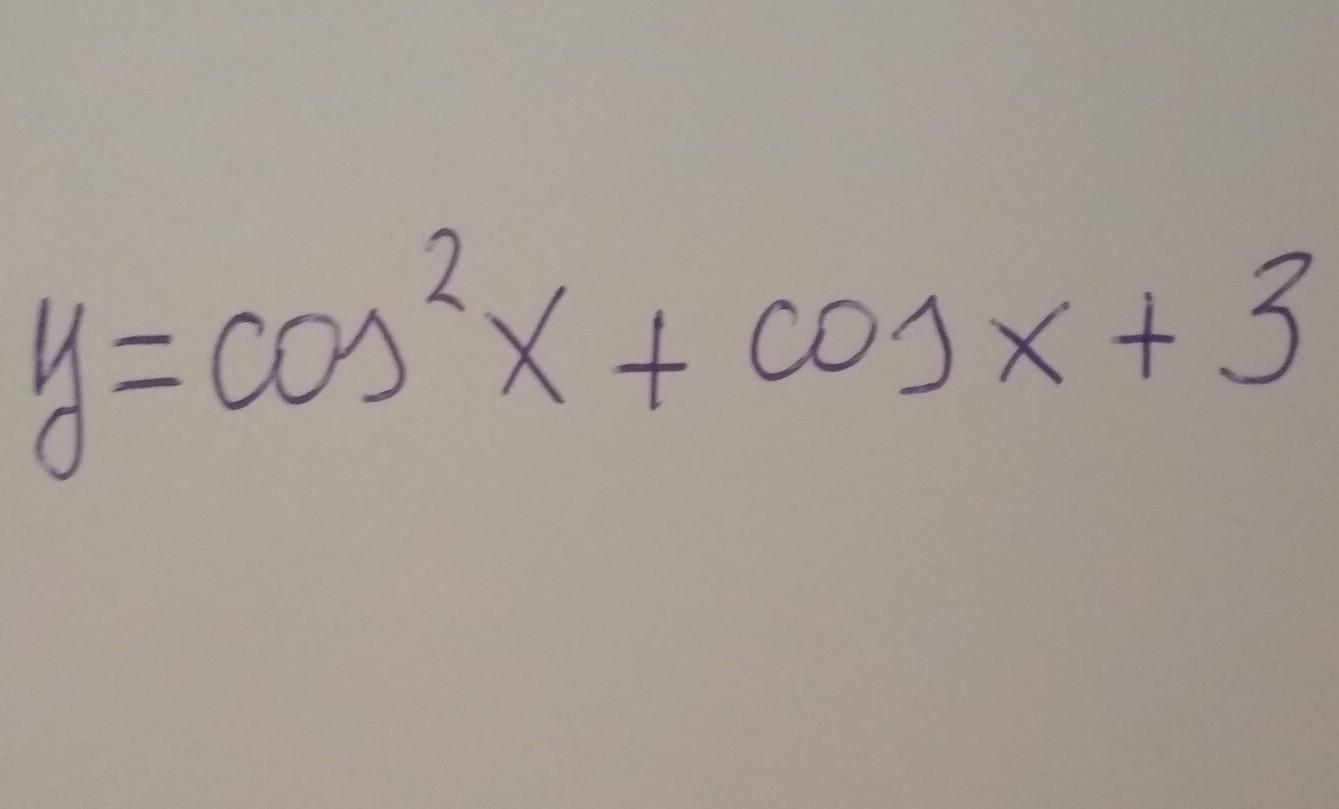 y = cos²x + cosx + 3